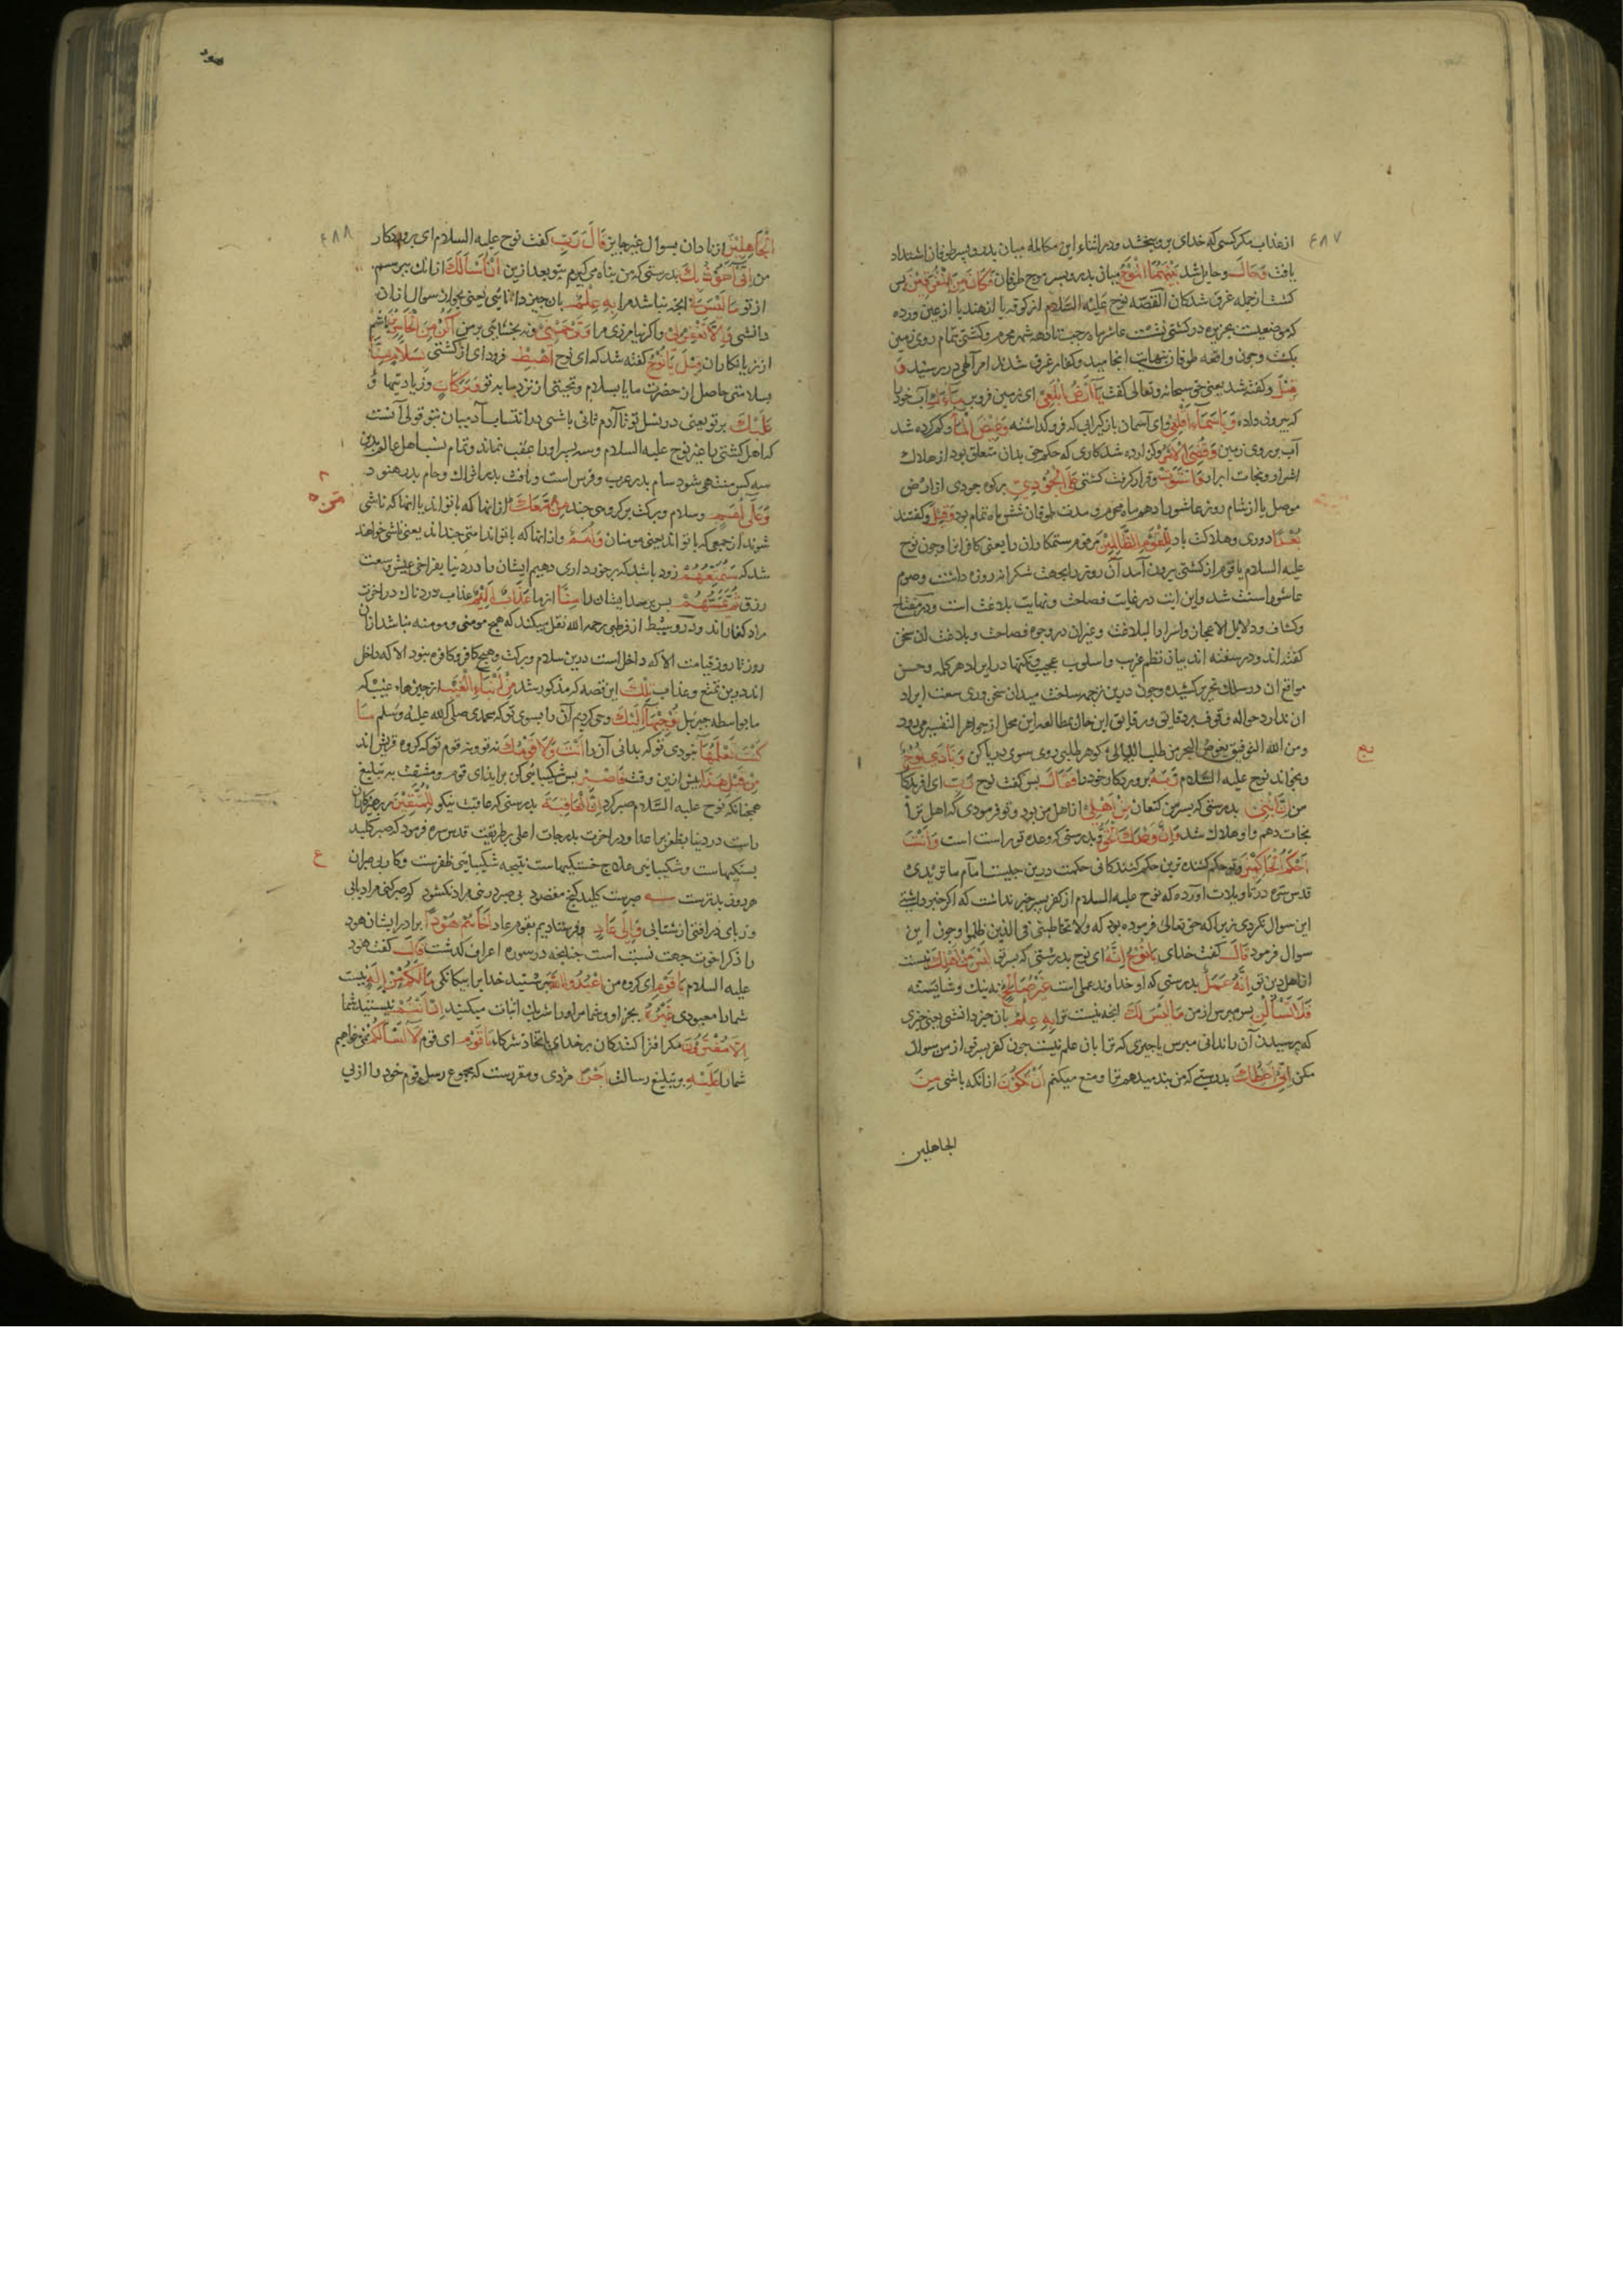 ۴۸۷
از عذاب مکر کسی که خدای برو ببخشد ودر اثناء این مکالمه میان پدر وپسر طوفان اشتداد
یافت وَحَالَ وحایل شد بَیْنَهُمَا الْمَوْجُ میان پدر وپسر موج طوفان فَکَانَ مِنَ الْمُغْرَقِیْنَ پس
کشت از جمله غرق شدکان القصه نوح علیه السلام از کوفه یا از هند یا از عین ورده
که موضعیست بجزیره در کشتی نشست عاشر ماه رجب تا دهه شهر محرم وکشتی تمام روی زمین
بکشت وچون واقعه طوفان بنهایت انجامید وکفار غرق شدند امر آلهی در رسید وَ
قِیْلَ وکفته شد یعنی حق سبحانه وتعالی کفت یَآ اَرْضُ ابْلَعِیْ ای زمین فرو بر مَآءَكِ آب خود را
که بیرون داده وَیَا سَمَآءُ اَقْلِعِیْ وای آسمان باز کیر آبی که فرو کذاشته وَغِیْضَ الْمَآءُ وکم کرده شد
آب بر روی زمین وَقُضِیَ الْاَمْرُ وکزارده شد کاری که حکم حق بدان متعلق بود از هلاك
اشرار ونجات ابرار وَاسْتَوَتْ وقرار کرفت کشتی عَلَی الْجُوْدِیِّ بر کوه جودی از ارض
موصل یا از شام روز عاشورا دهم ماه محرم ومدت طوفان شش ماه تمام بود وَقِیْلَ وکفتند
بُعْدًا دوری وهلاکت باد لِلْقَوْمِ الظَّالِمِیْنَ مر قوم ستمکاران را یعنی کافران وچون نوح
علیه السلام با قوم از کشتی بیرون آمد آن روز را بجهت شکرانه روزه داشت وصوم
عاشورا سنت شد واین آیت در غایت فصاحت ونهایت بلاغت است ودر مفتاح
وکشاف ودلایل الاعجاز واسرار البلاغت وغیران در وجوه فصاحت وبلاغت آن سخن
کفته اند ودر سفته اند بیان نظم غریب واسلوب عجیب ونکتها در ایراد هر کلمه وحسن
مواقع ان در سلك تحریر کشیده وچون درین ترجمه ساحت میدان سخن وری سعت ایراد
ان ندارد حواله وقوف بر دقایق ورقایق این حال بمطالعه این محل از جواهر التفسیر می رود
ومن الله التوفیق یغوص البحر من طلب اللیالی کوهر طلبی روی سوی دریا کن وَنَادَی نُوْحٌ
وبخواند نوح علیه السلام رَبَّهُ پروردکار خود را فَقَالَ پس کفت نوح رَبِّ ای آفریدکار
من اِنَّ ابْنِیْ بدرستی که پسر من کنعان مِنْ اَهْلِیْ از اهل من بود وتو فرمودی که اهل ترا
نجات دهم واو هلاك شد وَاِنَّ وَعْدَكَ الْحَقُّ وبدرستی که وعده تو راست است وَاَنْتَ
اَحْکَمُ الْحَاکِمِیْنَ وتو حکم کننده ترین حکم کنندکانی حکمت درین چیست امام ماتریدی
قدس سره در تاویلات اورده که نوح علیه السلام از کفر پسر خبر نداشت که اکر خبر داشتی
این سوال نکردی زیرا که حق تعالی فرموده بود که ولا تخاطبنی فی الذین ظلموا وچون این
سوال فرمود قَالَ کفت خدای یَا نُوْحُ اِنَّهُ ای نوح بدرستی که پسر تو لَیْسَ مِنْ اَهْلِكَ نیست
از اهل دین تو اِنَّهُ عَمَلٌ بدرستی که او خداوند عملی است غَیْرُ صَالِحٍ نه نیك وشایسته
فَلَا تَسْأَلْنِ پس مپرس از من مَا لَیْسَ لَكَ انچه نیست ترا بِهِ عِلْمٌ بان چیز دانشی یعنی چیزی
که پرسیدن آن را ندانی مپرس یا چیزی که ترا بان علم نیست چون کفر پسر تو از من سوال
مکن اِنِّیْ اَعِظُكَ بدرستی که من پند میدهم ترا ومنع میکنم اَنْ تَکُوْنَ از انکه باشی مِنَ
الجاهلین
هود
۴۸۸
الْجَاهِلِیْنَ از نادان بسوال غیر جایز قَالَ رَبِّ کفت نوح علیه السلام ای پروردکار
من اِنِّیْ اَعُوْذُ بِكَ بدرستی که من پناه می کیرم بتو بعد ازین اَنْ اَسْأَلَكَ از انك بپرسم
از تو مَا لَیْسَ لِیْ انچه نباشد مرا بِهِ عِلْمٌ بان چیز دانایی یعنی بجواز سوال از ان
دانشی وَاِلَّا تَغْفِرْ لِیْ واکر نیامرزی مرا وَتَرْحَمْنِیْ ونه بخشایی بر من اَکُنْ مِنَ الْخَاسِرِیْنَ باشم
از زیانکاران قِیْلَ یَا نُوْحُ کفته شد که ای نوح اهْبِطْ فرود ای از کشتی بِسَلَامٍ مِنَّا
بسلامتی حاصل از حضرت ما یا بسلام وتحیتی از نزد ما بر تو وَبَرَکَاتٍ وزیادتیها وَ
عَلَیْكَ بر تو یعنی در نسل تو تا آدم ثانی باشی در انتساب آدمیان بتو قولی آنست
که اهل کشتی با غیر نوح علیه السلام وسه پسر اورا عقب نماند وتمام نسب اهل عالم بدین
سه کس منتهی شود سام پدر عرب وفرس است ویافث پدر اتراك وحام پدر هنود
وَعَلَی اُمَمٍ وسلام وبرکت بر کروهی چند مِمَّنْ مَعَكَ از انها که با تو اند یا انها که ناشی
شوند از جمعی که با تو اند یعنی مومنان وَاُمَمٌ وازانها که با تو اند امتی چند اند یعنی ناشی خواهند
شد که سَنُمَتِّعُهُمْ زود باشد که برخورداری دهیم ایشان را در دنیا بفراخی عیش وسعت
رزق ثُمَّ یَمَسُّهُمْ پس برسد ایشان را مِنَّا از ما عَذَابٌ اَلِیْمٌ عذاب دردناك در اخرت
مراد کفار اند ودر وسیط از قرظی رحمه الله نقل میکند که هیچ مومنی ومومنه نباشد ازان
روز تا روز قیامت الا که داخل است درین سلام وبرکت وهیچ کافر وکافره نبود الا که داخل
اند درین تمتع وعذاب تِلْكَ این قصه که مذکور شد مِنْ اَنْبَآءِ الْغَیْبِ از خبرهاء غیب که
ما بواسطه جبرئیل نُوْحِیْهَآ اِلَیْكَ وحی کردیم آن را بسوی تو که محمدی صلی الله علیه وسلم مَا
کُنْتَ تَعْلَمُهَآ نبودی تو که بدانی آن را اَنْتَ وَلَا قَوْمُكَ نه تو ونه قوم تو که کروه قریش اند
مِنْ قَبْلِ هَذَا پیش ازین وقت فَاصْبِرْ پس شکیبایی کن بر ایذای قوم ومشقت به تبلیغ
همچنانکه نوح علیه السلام صبر کرد اِنَّ الْعَاقِبَةَ بدرستی که عاقبت نیکو لِلْمُتَّقِیْنَ مر پرهیزکاران
راست در دنیا بظفر بر اعدا ودر اخرت بدرجات اعلی پیر طریقت قدس سره فرمود که صبر کلید
بستکیهاست وشکیبایی علاج خستکیهاست نتیجه شکیبایی ظفرست وکار بی صبران
هر روز بدترست صبرست کلید کنج مقصود بی صبر در مراد نکشود کر صبر کنی مراد یابی
وز پای در افتی از شتابی وَاِلَی عَادٍ وفرستادیم بقوم عاد اَخَاهُمْ هُوْدًا برادر ایشان هود
را ذکر اخوت جهت نسبت است چنانچه در سوره اعراف کذشت قَالَ کفت هود
علیه السلام یَا قَوْمِ ای کروه من اعْبُدُوا اللّٰهَ بپرستید خدایرا بیکانکی مَا لَکُمْ مِنْ اِلَهٍ نیست
شما را معبودی غَیْرُهُ بجز او وشما مر اورا شریك اثبات میکنید اِنْ اَنْتُمْ نیستید شما
اِلَّا مُفْتَرُوْنَ مکر افترا کنندکان بر خدای باتخاذ شرکا یَا قَوْمِ ای قوم لَآ اَسْأَلُکُمْ نمی خواهم
شما را عَلَیْهِ بر تبلیغ رسالت اَجْرًا مزدی ومقررست که مجموع رسل قوم خود را از بی